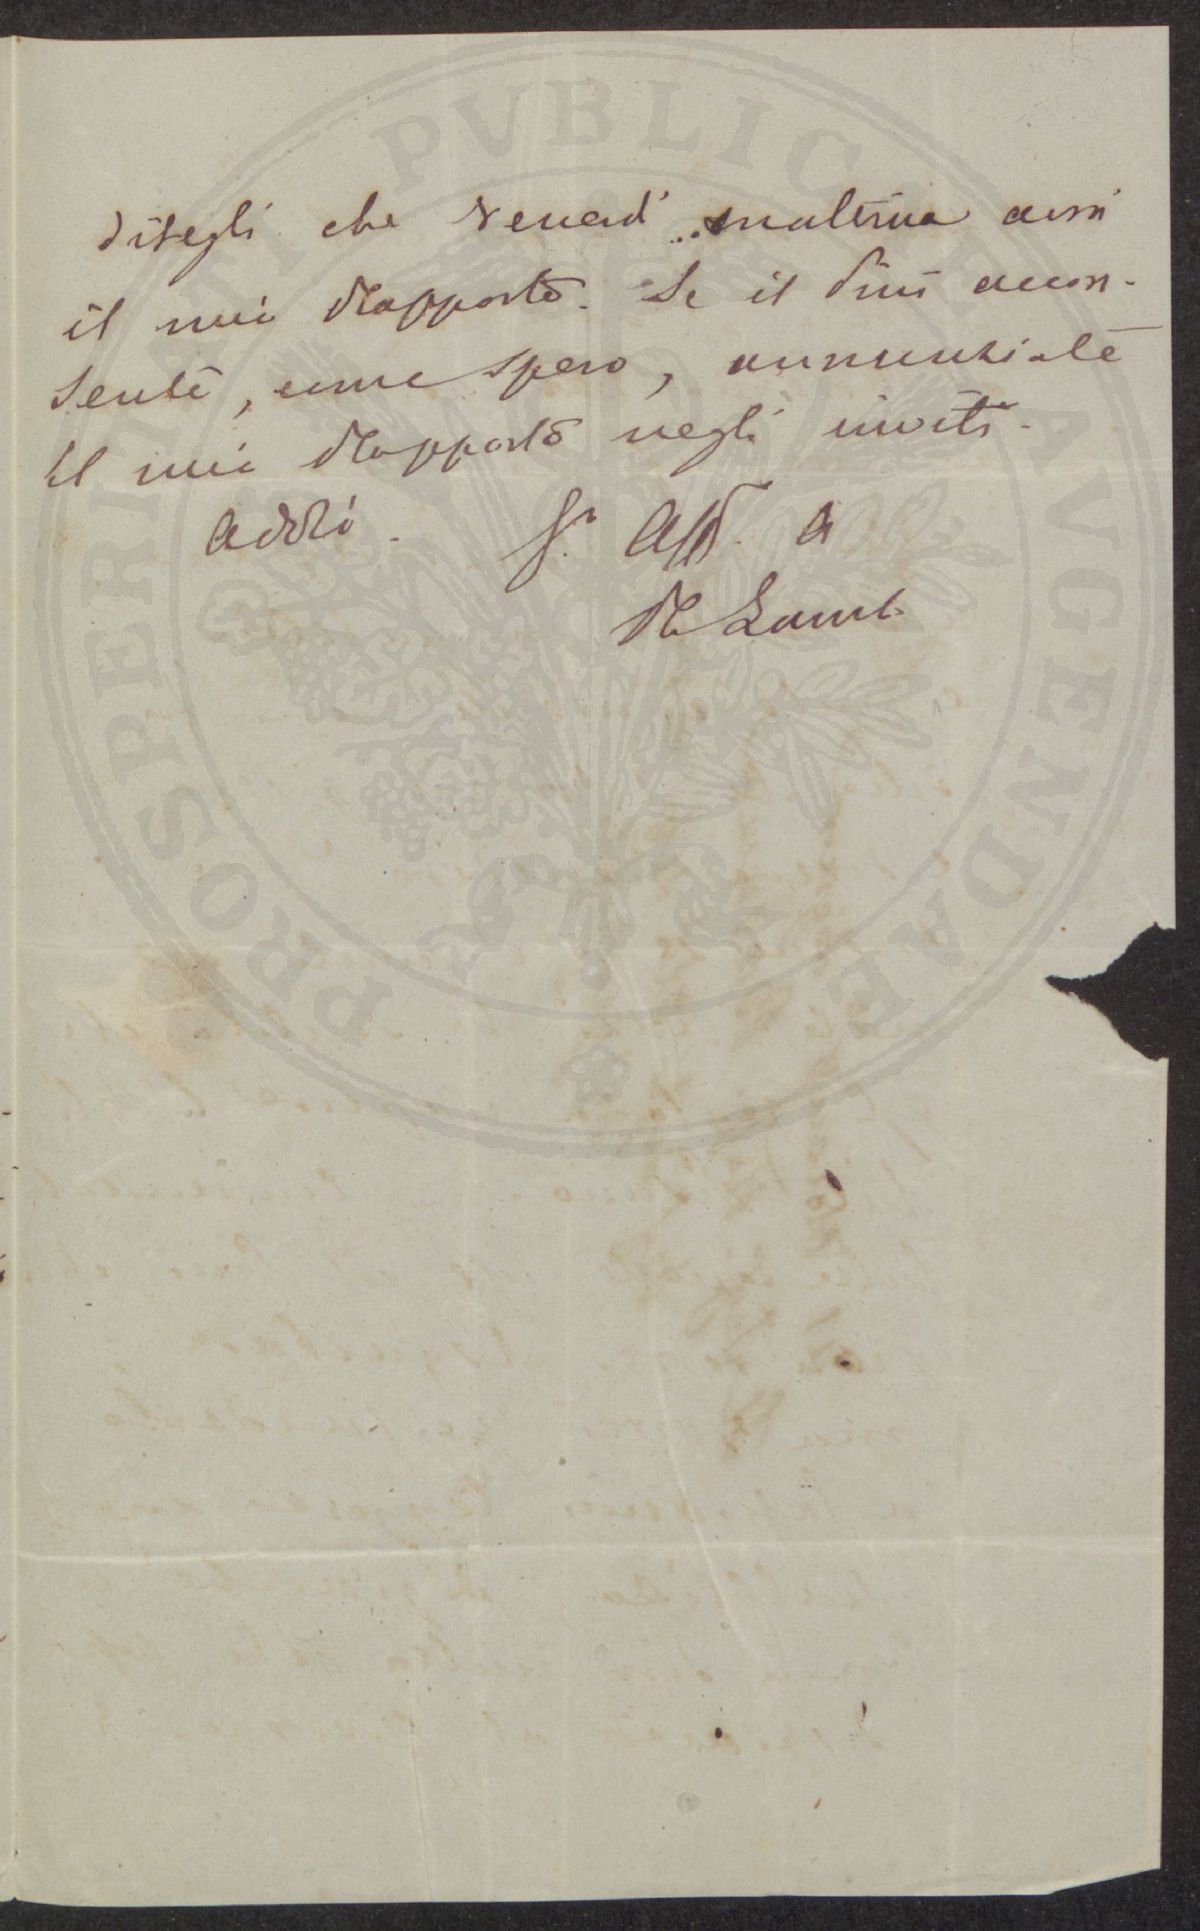 ditegli che Venerdì mattina avrà
il mio Rapporto. Se il Pini accon-
sente, come spero, annunziate
il mio Rapporto negli inviti.
Addio. Aff. a
R Lamb.
PROSPERITATI PVBLICAE AVGENDAE